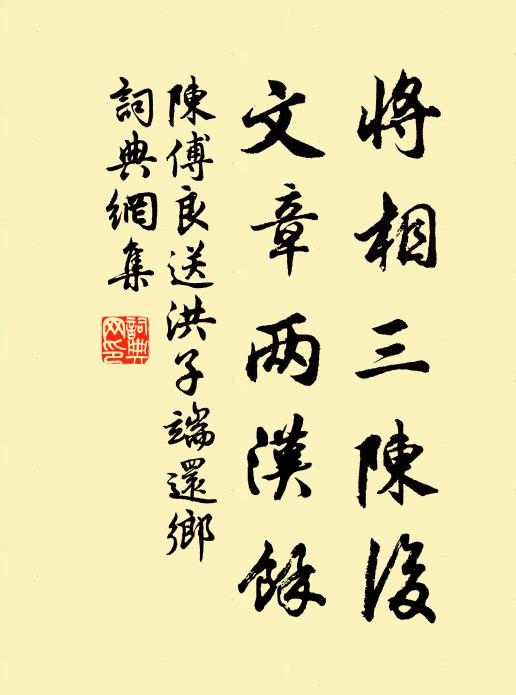 將相三陳後
文章两漢餘
陳傅良送洪子端還鄉
詞典網集
詞典网印